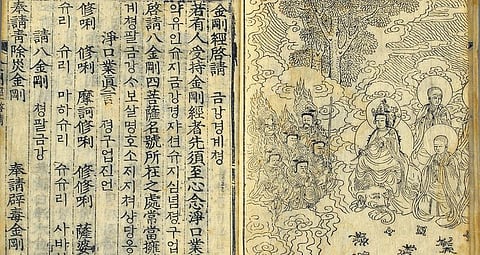 金剛經啓請 금강경계쳥
若有人受持金剛經者先須至心念淨口業
약유인슈지금강경쟈션슈지심념졍구업
啓請八金剛四菩薩名號所在之處常當擁
계쳥팔금강ᄉ보살명호소ᄌᆡ지쳐샹당옹
淨口業眞言 졍구업진언
修唎 修唎 摩訶修唎 修修唎 薩婆
슈리 슈리 마하슈리 슈슈리 사바
請八金剛 쳥팔금강
奉請靑除災金剛 奉請辟毒金剛